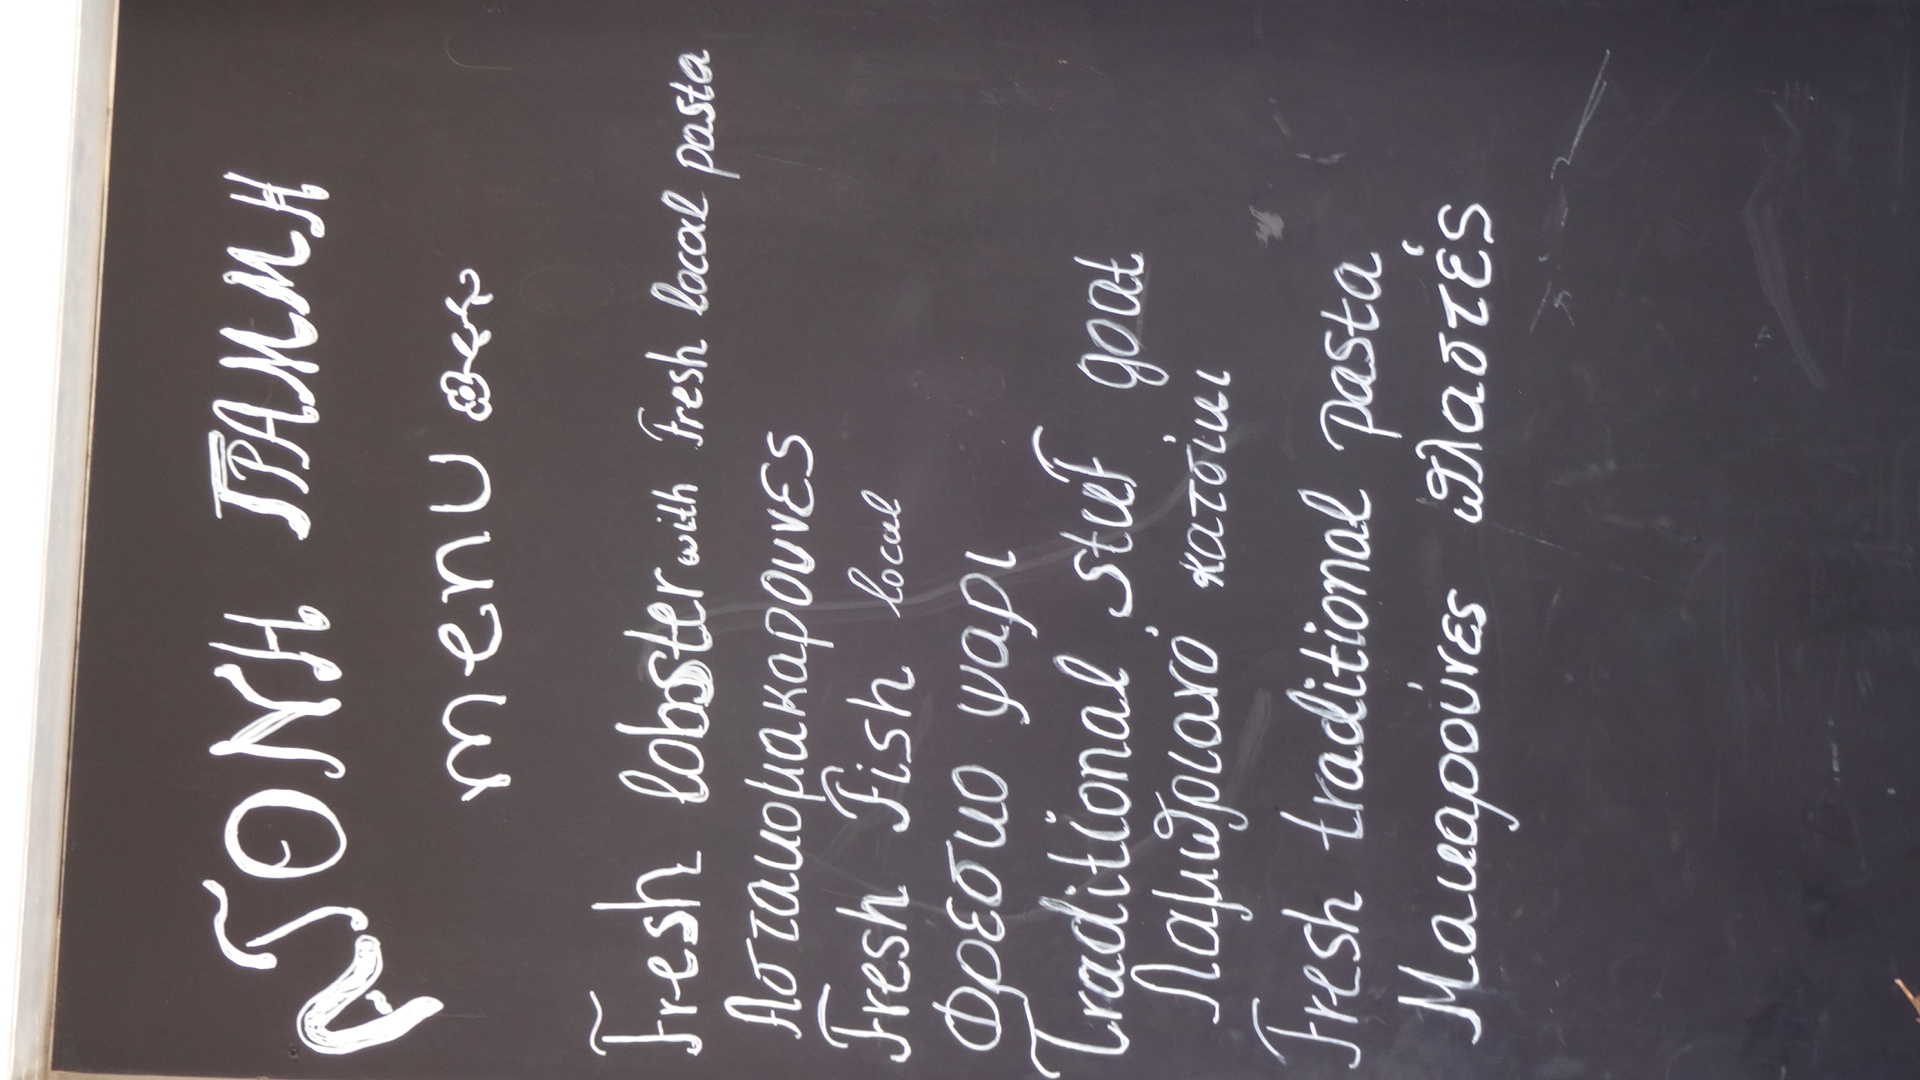 ΑΓΟΝΗ ΓΡΑΜΜΗ
menu
Fresh lobster with Fresh local pasta
Αστακομακαρουνες
Fresh Fish local
Φρεσκο ψαρι
Traditional stuf goat
Λαμπριανό κατσίκι
Fresh traditional pasta
Μακαρούνες πλαστές